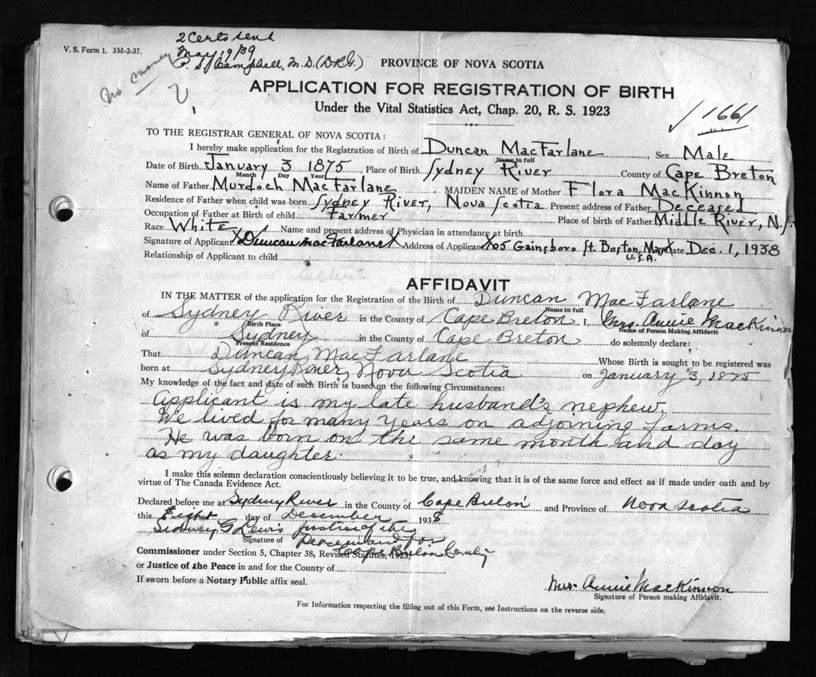 2 Certs sent
V. S. Form 1. 3M-2-37.
May 19/39
no money
Campbell, M.D. (D.R.G.)
PROVINCE OF NOVA SCOTIA
APPLICATION FOR REGISTRATION OF BIRTH
Under the Vital Statistics Act, Chap. 20, R. S. 1923
√ 1661
TO THE REGISTRAR GENERAL OF NOVA SCOTIA:
I hereby make application for the Registration of Birth of Duncan MacFarlane Sex Male
Name in full
Date of Birth January 3 1875 Place of Birth Sydney River County of Cape Breton
Month Day Year
Name of Father Murdoch MacFarlane MAIDEN NAME of Mother Flora MacKinnon
Residence of Father when child was born Sydney River, Nova Scotia Present address of Father Deceased
Occupation of Father at Birth of child Farmer Place of birth of Father Middle River, N.S.
Race White Name and present address of Physician in attendance at birth
Signature of Applicant X Duncan MacFarlane X Address of Applicant 205 Gainsboro St. Boston, Mass. Date Dec. 1, 1938
U.S.A.
Relationship of Applicant to child
AFFIDAVIT
IN THE MATTER of the application for the Registration of the Birth of Duncan MacFarlane
Name in full
of Sydney River in the County of Cape Breton I, Mrs. Annie MacKinnon
Birth Place Name of Person Making Affidavit
of Sydney in the County of Cape Breton do solemnly declare:
Present Residence
That Duncan MacFarlane Whose Birth is sought to be registered was
born at Sydney River, Nova Scotia on January 3, 1875
My knowledge of the fact and date of such Birth is based on the following Circumstances:
Applicant is my late husband's nephew.
We lived for many years on adjoining farms.
He was born on the same month and day
as my daughter.
I make this solemn declaration conscientiously believing it to be true, and knowing that it is of the same force and effect as if made under oath and by
virtue of The Canada Evidence Act.
Declared before me at Sydney River in the County of Cape Breton and Province of Nova Scotia
this Eight day of December 1938
Sidney G Lewis Justice of the
Signature of Peace in and for
Commissioner under Section 5, Chapter 38, Revised Statutes, 1923, Cape Breton County
or Justice of the Peace in and for the County of
If sworn before a Notary Public affix seal.
Mrs. Annie MacKinnon
Signature of Person making Affidavit.
For Information respecting the filling out of this Form, see Instructions on the reverse side.